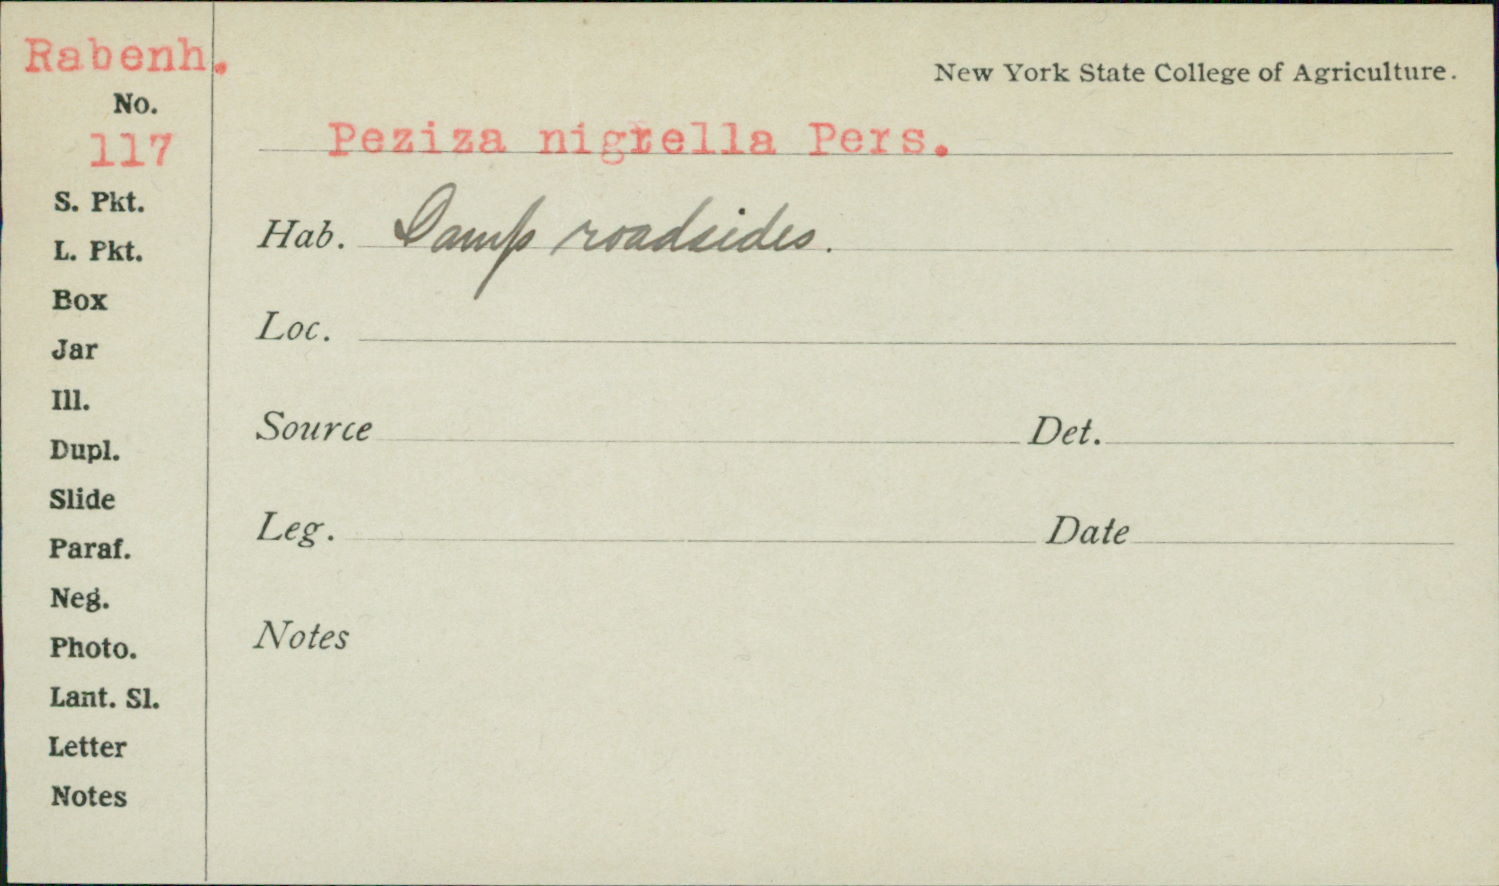 Rabenh.
New York State College of Agriculture.
No.
117
Peziza nigrella Pers.
S. Pkt.
Hab. Damp roadsides.
L. Pkt.
Box
Loc.
Jar
Ill.
Source Det.
Dupl.
Slide
Leg. Date
Paraf.
Neg.
Notes
Photo.
Lant. Sl.
Letter
Notes